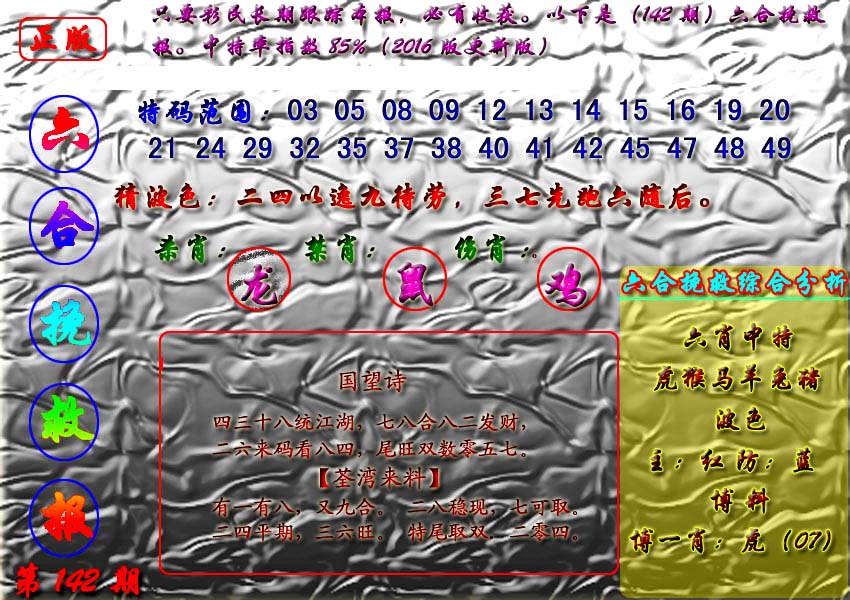 正版
只要彩民长期跟踪本报，必有收获。以下是（142期）六合挽救
报。中特率指数85%（2016版更新版）
六
合
挽
救
报
第142期
特码范围：03 05 08 09 12 13 14 15 16 19 20
21 24 29 32 35 37 38 40 41 42 45 47 48 49
猜波色：二四以逸九待劳，三七先跑六随后。
杀肖：龙 禁肖：鼠 伤肖：鸡。
国望诗
四三十八统江湖，七八合八二发财，
二六来码看八四，尾旺双数零五七。
【荃湾来料】
有一有八，又九合。 二八稳现，七可取。
二四半期，三六旺。 特尾取双．二零四。
六合挽救综合分析
六肖中特
虎猴马羊兔猪
波色
主：红防：蓝
博料
博一肖：虎（07）